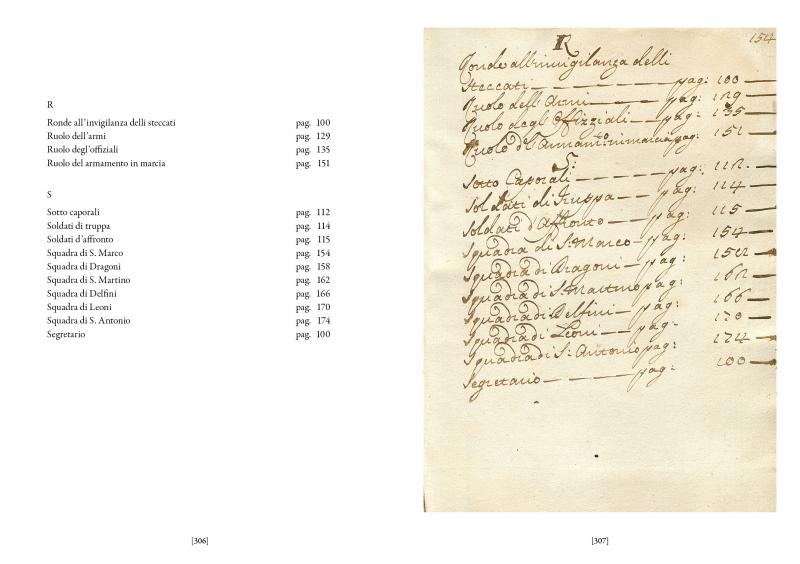 R
Ronde all'invigilanza delli steccati pag. 100
Ruolo dell'armi pag. 129
Ruolo degl'offiziali pag. 135
Ruolo del armamento in marcia pag. 151
S
Sotto caporali pag. 112
Soldati di truppa pag. 114
Soldati d'affronto pag. 115
Squadra di S. Marco pag. 154
Squadra di Dragoni pag. 158
Squadra di S. Martino pag. 162
Squadra di Delfini pag. 166
Squadra di Leoni pag. 170
Squadra di S. Antonio pag. 174
Segretario pag. 100
[306]
154
R
Ronde all'invigilanza delli
steccati pag: 100
Ruolo dell'Armi pag: 129
Ruolo degl'Offizziali pag: 135
Ruolo del Armam:to in marcia pag: 151
S:
Sotto Caporali pag: 112
Soldati di Truppa 114
Soldati d'Affronto pag: 115
Squadra di S: Marco pag: 154
Squadra di Dragoni pag: 158
Squadra di S: Martino pag: 162
Squadra di Delfini pag: 166
Squadra di Leoni pag: 170
Squadra di S: Antonio pag: 174
Segretario pag: 100
[307]